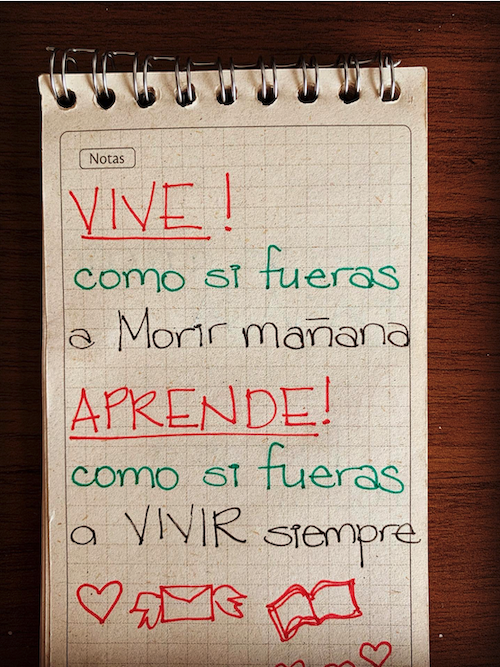 Notas
VIVE!
como si fueras
a Morir mañana
APRENDE!
como si fueras
a VIVIR siempre